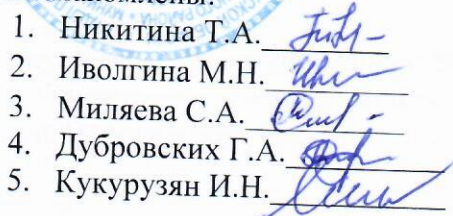 1. Никитина Т.А.
2. Иволгина М.Н.
3. Миляева С.А.
4. Дубровских Г.А.
5. Кукурузян И.Н.